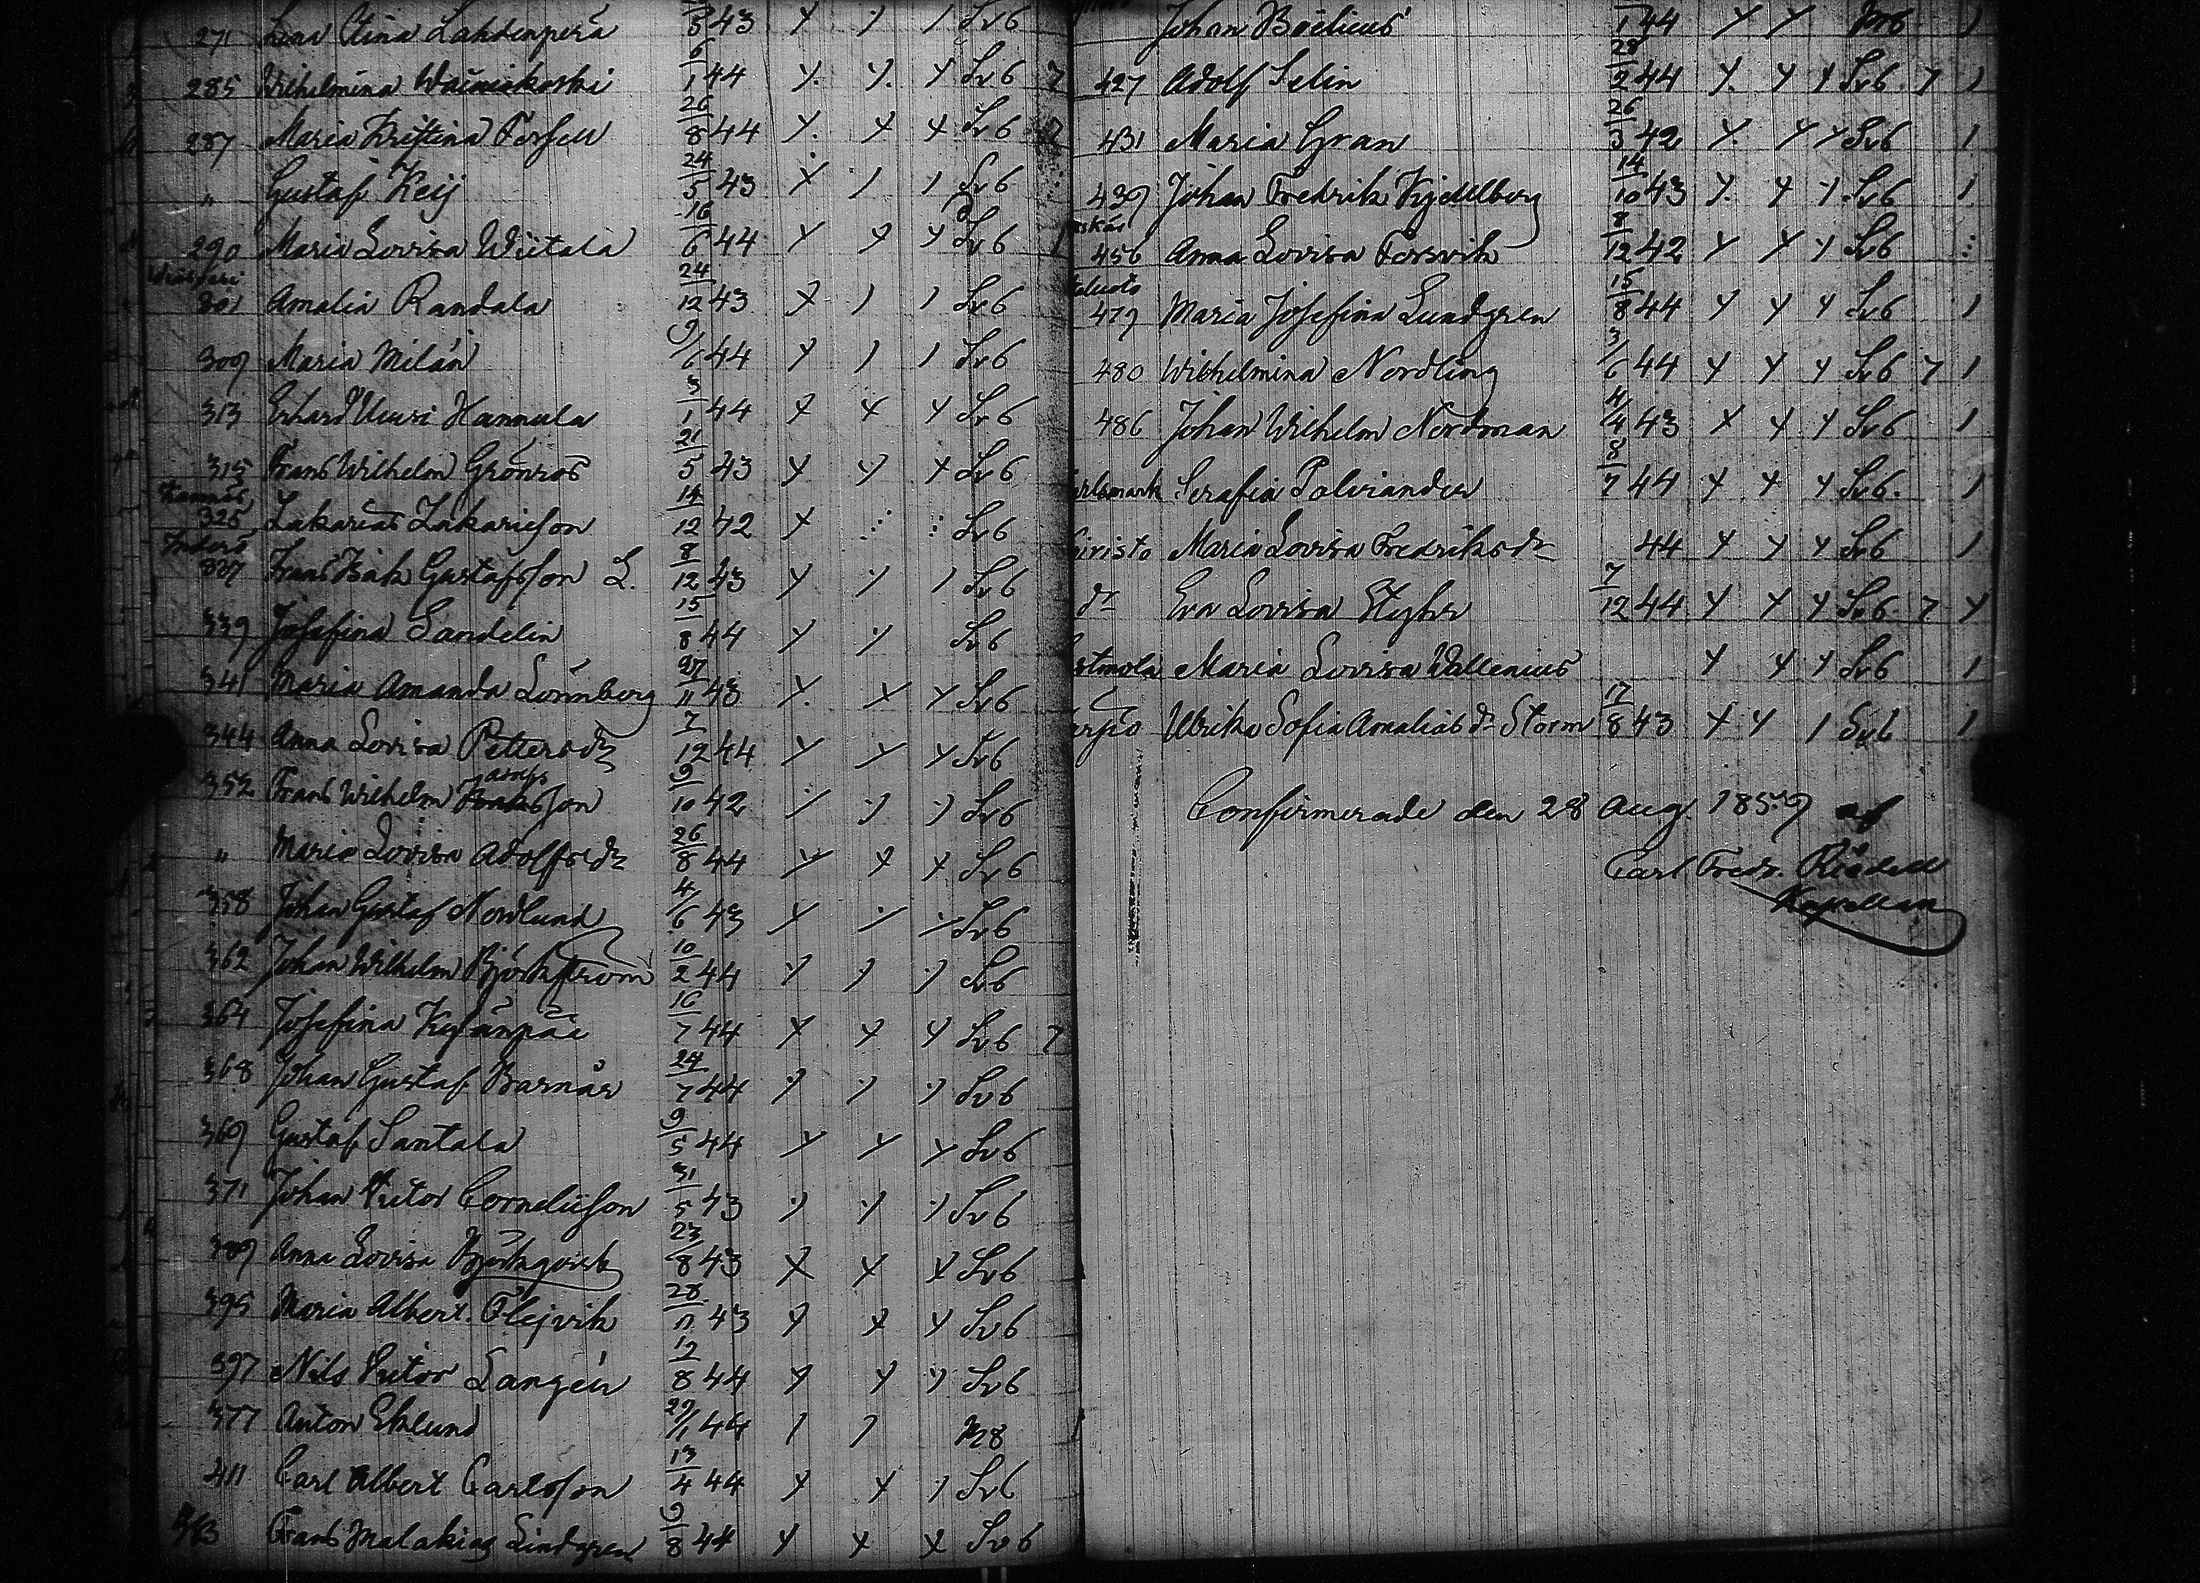 271 Lena Stina Lahdenperä 5 43 Sv6
285 Wilhelmina 6/1 44 Sv6 7
287 Maria Kristina Forsell 26/8 44 Sv6
" Gustaf Keij 24/5 43 Sv6
290 Maria Lovisa Wiitala 16/6 44 Sv6
301 Amalia Randala 24/12 43 Sv6
309 Maria Milán 9/6 44 Sv6
313 Erhard Hannula 3/1 44 Sv6
315 Frans Wilhelm Grönroos 21/5 43 Sv6
326 Zakarias Zakariesson 14/12 42 Sv6
327 Frans Isak Gustafsson L. 8/12 43 Sv6
339 Josefina Sandelin 15/8 44 Sv6
341 Maria Amanda Lönnberg 27/11 43 Sv6
344 Anna Lovisa Pettersdr 7/12 44 Sv6
352 Frans Wilhelm 9/10 42 Sv6
" Maria Lovisa Adolfsdr 26/8 44 Sv6
358 Johan Gustaf Nordlund 4/6 43 Sv6
362 Johan Wilhelm Björkström 10/2 44 Sv6
364 Josefina Kesänpää 16/7 44 Sv6 7
368 Johan Gustaf Barnås 24/7 44 Sv6
369 Gustaf Santala 9/5 44 Sv6
371 Johan Victor Corneliison 31/5 43 Sv6
389 Anna Lovisa Björkqvist 23/8 43 Sv6
395 Maria Albert. Flejvik 28/11 43 Sv6
397 Nils Victor Langén 12/8 44 Sv6
377 Anton Eklund 29/1 44
411 Carl Albert Carlsson 13/4 44 Sv6
Frans Malakias Lindgren 9/8 44 Sv6
Johan Boëlius 1 44
427 Adolf Selin 28/2 44 Sv6 7
431 Maria Gran 26/3 42 Sv6
439 Johan Fredrik Kjedelberg 14/10 43 Sv6
456 Anna Lovisa Forsvik 8/12 42 Sv6
479 Maria Josefina Lundgren 15/8 44 Sv6
480 Wilhelmina Nordling 3/6 44 Sv6 7
486 Johan Wilhelm Nordman 4/4 43 Sv6
Serafia Polviander 8/7 44 Sv6.
Maria Lovisa Fredriksdr 44 Sv6
dr Eva Lovisa Styhr 7/12 44 Sv6 7
Maria Lovisa Wallenius Sv6
Ulrika Sofia Amalias dr Storm 17/8 43 Sv6
Confirmerade den 28 Aug. 1859 af
Carl Fredr.
Kapellan